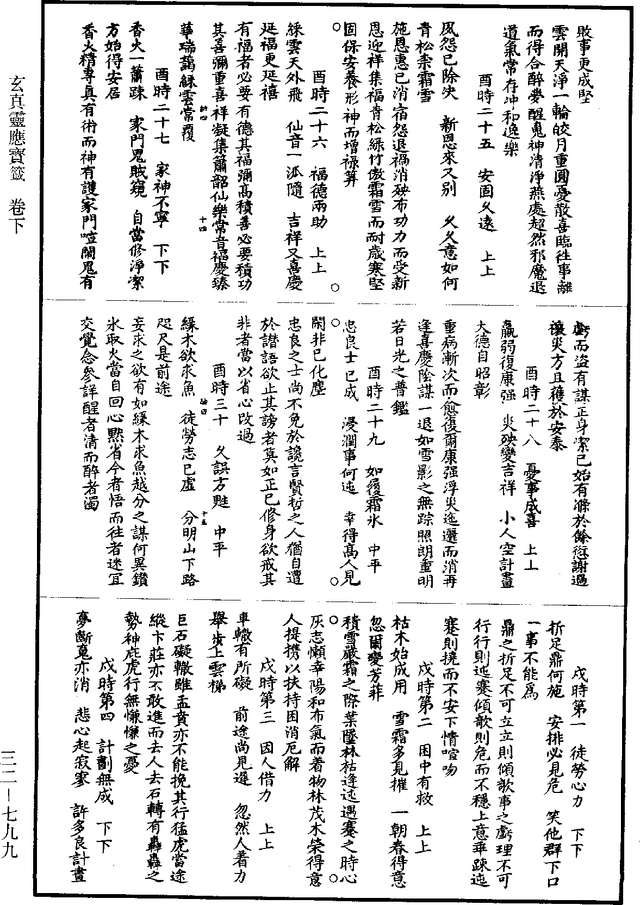 敗事更成堅
雲開天淨一輪皎月重圓憂散喜臨往事離
而得合醉夢醒䰠神清淨燕處超然邪魔退
道氣常存坤和逸樂
酉時二十五　安固久遠　上上
夙怨已除決　新恩來又別　久久意如何
青松柰霜雪
施恩惠已消宿怨退禍消殃布功力而受新
恩迎祥集福青松綠竹傲霜雪而耐歲寒堅
固保安養形神而增祿算
酉時二十六　福德兩助　上上
綵雲天外飛　仙音一派隨　吉祥又喜慶
延福更延禧
有福者必要有德其福彌高積善必要積功
其喜彌重喜祥凝集蕭韶仙樂常音福慶臻
華瑞藹綵雲常覆
酉時二十七　家神不寧　下下
香火一蕭踈　家門鬼賊窺　自當修淨潔
方始得安居
香火精專真有術而神有護家門喧鬧鬼有
虧而盜有謀正身潔己始有滌於餘愆謝過
禳災方且獲於安泰
酉時二十八　憂事成喜　上上
羸弱復康强　災殃變吉祥　小人空計畫
大德自昭彰
重病漸次而愈復爾康强浮災迤邐而消再
逢喜慶陰謀一退如雪影之無踪照朗重明
若日光之普鑑
酉時二十九　如履霜氷　中平
忠良士已成　浸潤事何迍　幸得髙人見
閙非已化塵
忠良之士尚不免於讒言賢哲之人猶自遭
於譖語欲止其謗者莫如正已修身欲戒其
非者當以省心改過
酉時三十　久誤方甦　中平
緣木欲求魚　徒勞志已虛　分明山下路
咫尺是前途
妄求之欲有如緣木求魚越分之謀何異鑽
氷取火當自回心黙省今者悟而往者迷宜
交覺念參詳醒者清而醉者濁
戌時第一　徒勞心力　下下
折足鼎何施　安排必見危　笑他群下口
一事不能爲
鼎之折足不可立立則傾歌事之虧理不可
行行則迍蹇傾歌則危而不穩上意乖踈迍
蹇則撓而不安下情喧吻
戌時第二　困中有救　上上
枯木始成用　雪霜多見摧　一朝春得意
忽爾變芳菲
積雪嚴霜之際葉墜林枯逢迍遇蹇之時心
灰志懶幸陽和布氣而着物林茂木榮得意
人提携以扶持困消厄解
戌時第三　因人借力　上上
車轍有所礙　前途尚見遲　忽然人着力
舉步上雲梯
巨石礙轍雖孟賁亦不能挽其行猛虎當途
縱卞莊亦不敢進而去人去石轉有轟轟之
勢神庇虎行無慊慊之憂
戌時第四　計劃無成　下下
夢斷䰟亦消　悲心起寂寥　許多良計畫
玄真靈應寶籤　卷下
三二—七九九